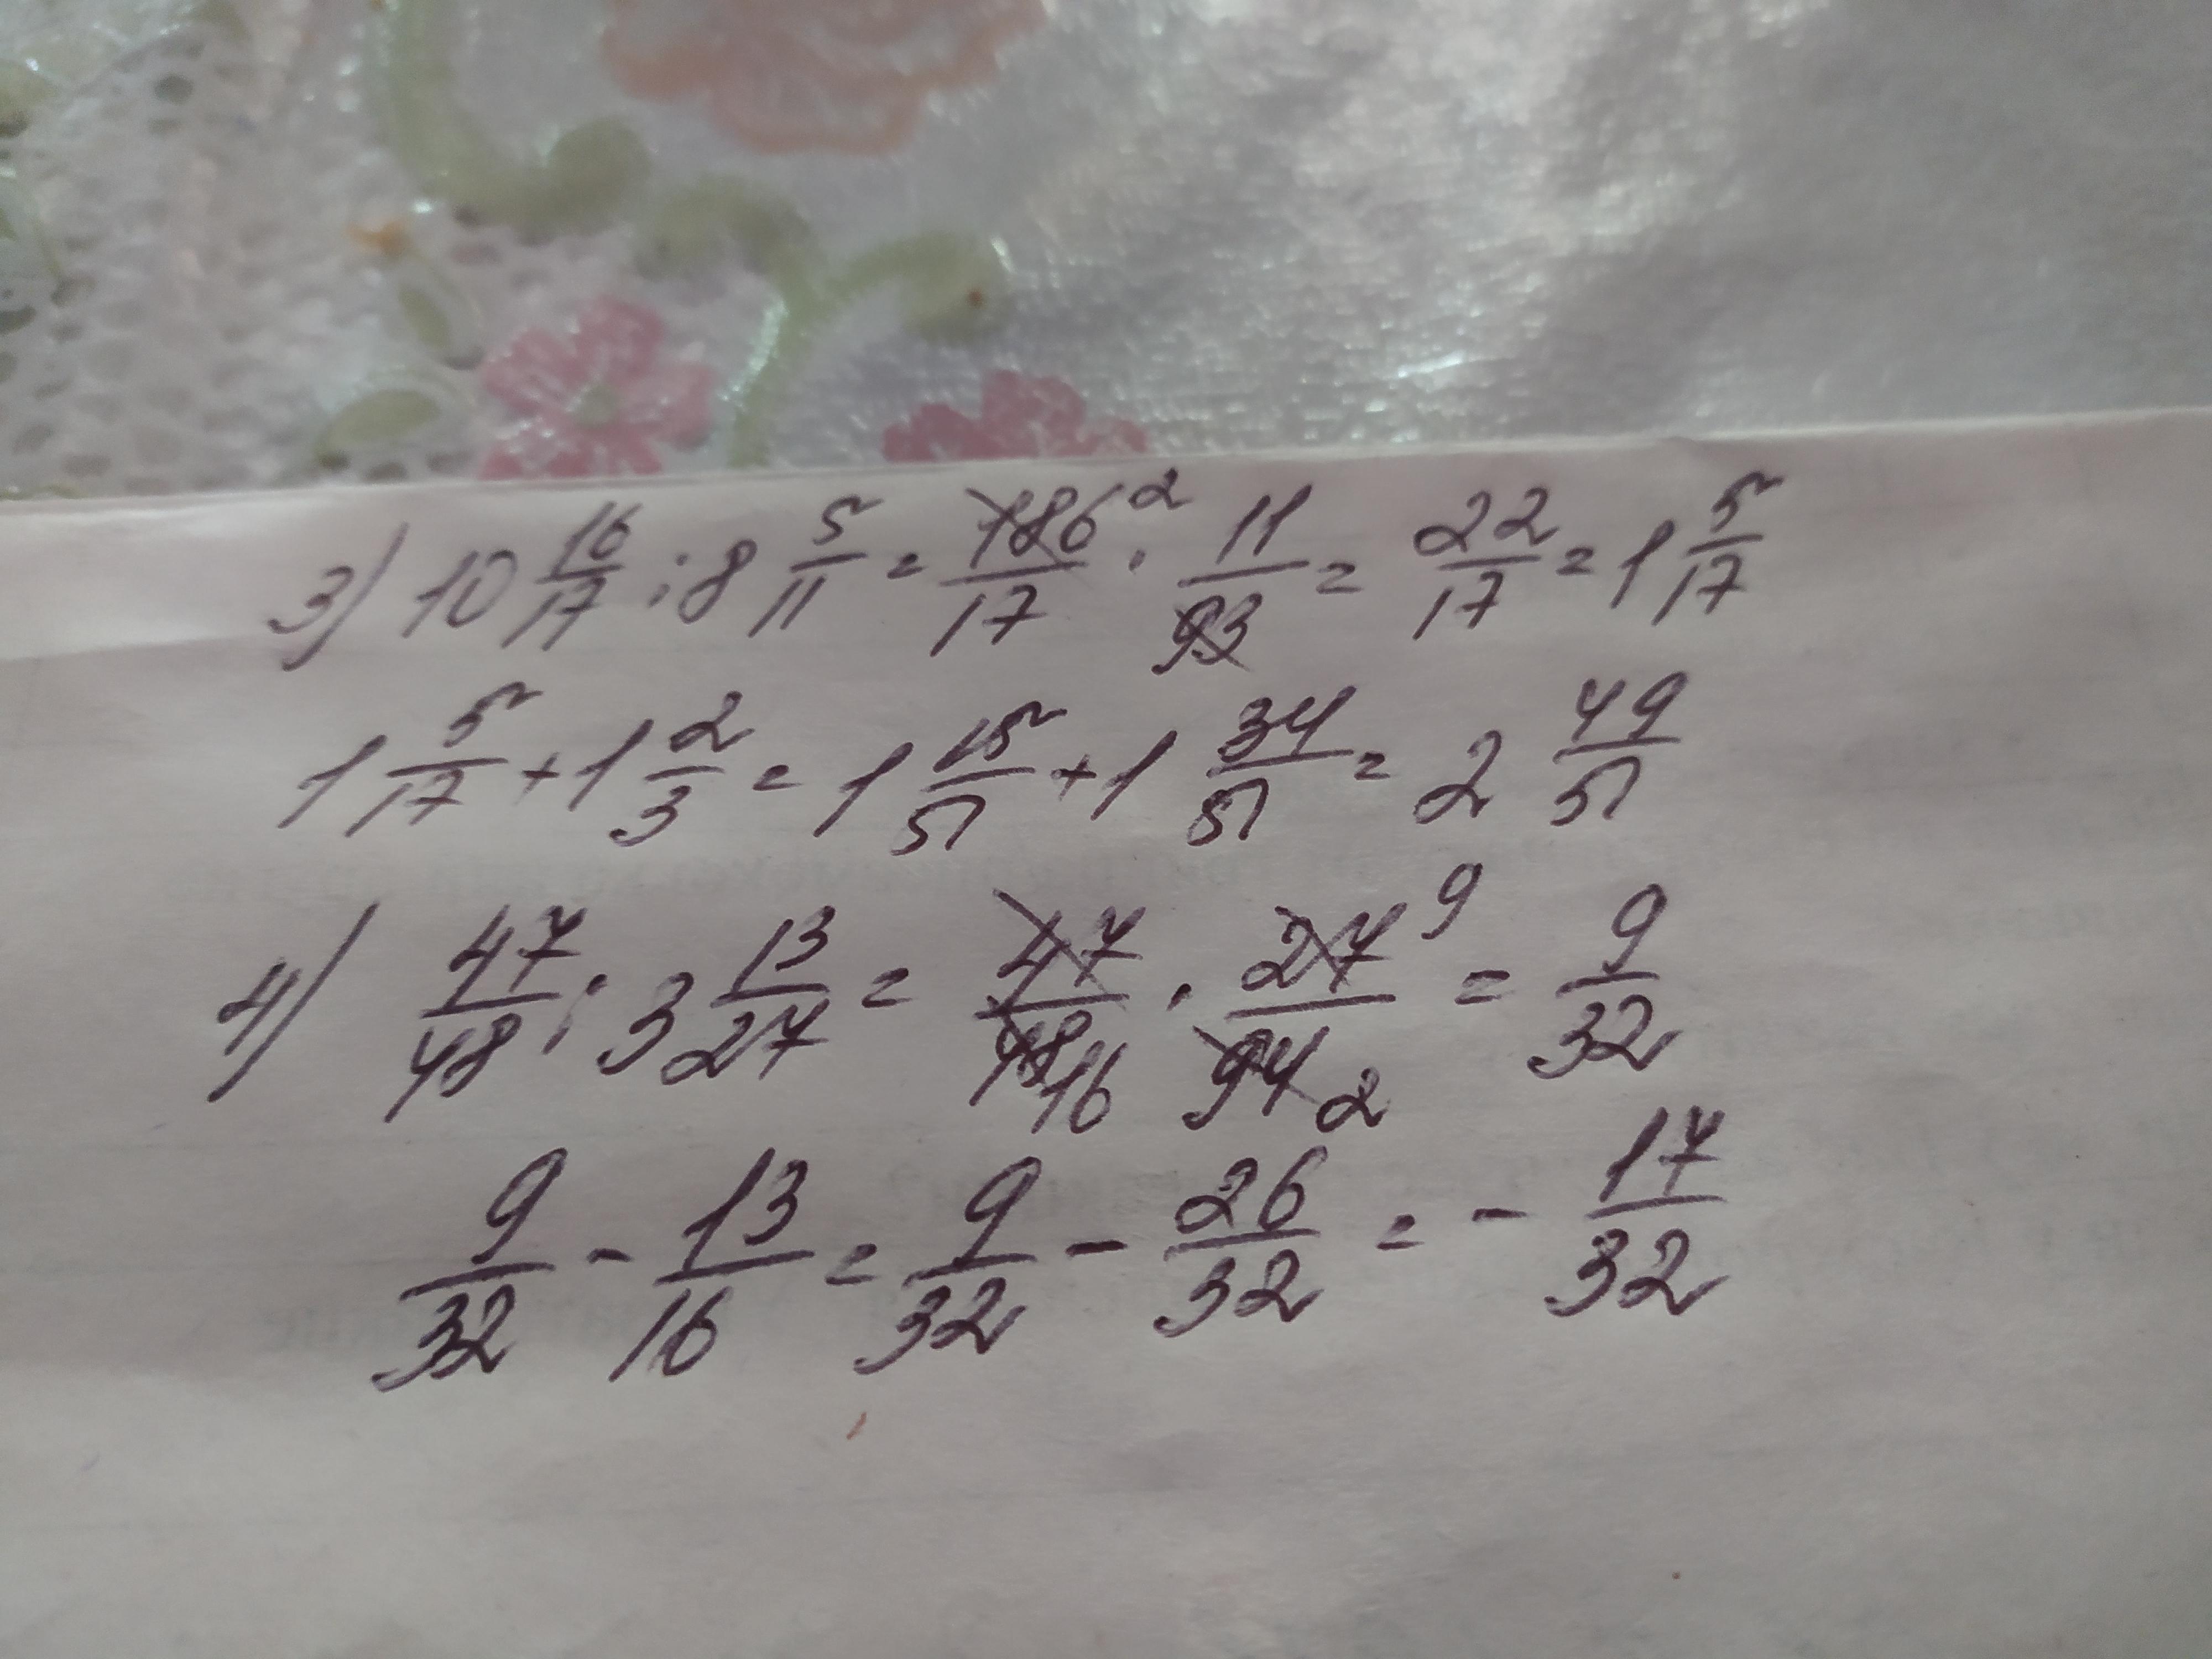 3) 10 16/17 : 8 5/11 = 186/17 2 · 11/93 = 22/17 = 1 5/17
1 5/17 + 1 2/3 = 1 15/51 + 1 34/51 = 2 49/51
4) 47/48 : 3 13/27 = 47/48 16 · 27 9/94 2 = 9/32
9/32 - 13/16 = 9/32 - 26/32 = - 17/32